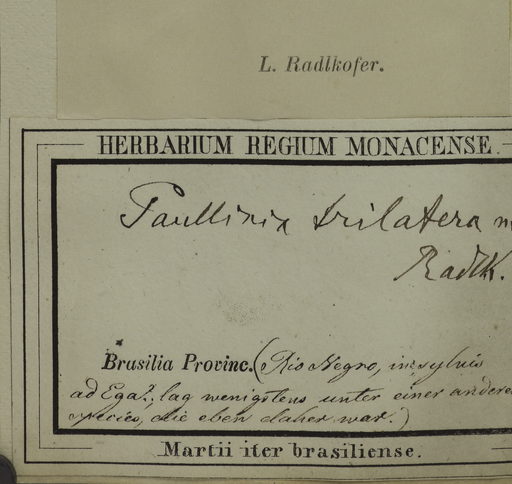 L. Radlkofer.
HERBARIUM REGIUM MONACENSE.
Paullinia trilatera
Radlk.
Brasilia Provinc. (Rio Negro, in sylvis
ad Ega?, lag wenigstens unter einer andere
species, die eben daher war.)
Martii iter brasiliense.